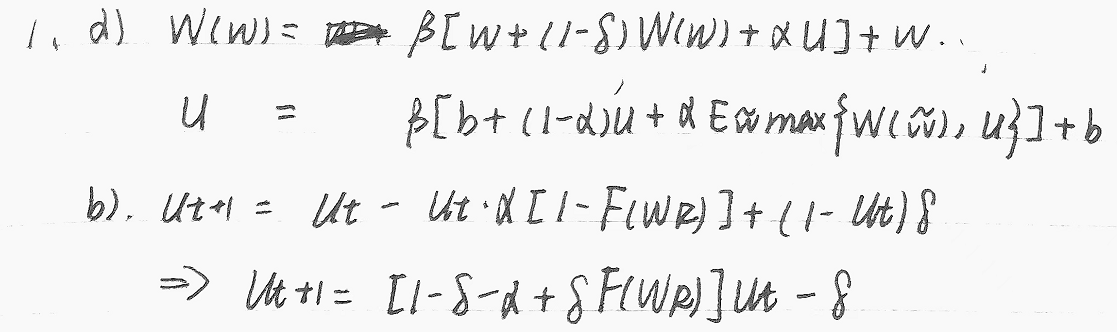 1. a) W(w) = β[w + (1-δ)W(w) + αU] + w..
U = β[b + (1-α)U + α E w̃ max{W(w̃), U}] + b
b). Ut+1 = Ut - Ut·α[1-F(WR)] + (1-Ut)δ
⇒ Ut+1 = [1-δ-α+δF(WR)]Ut - δ